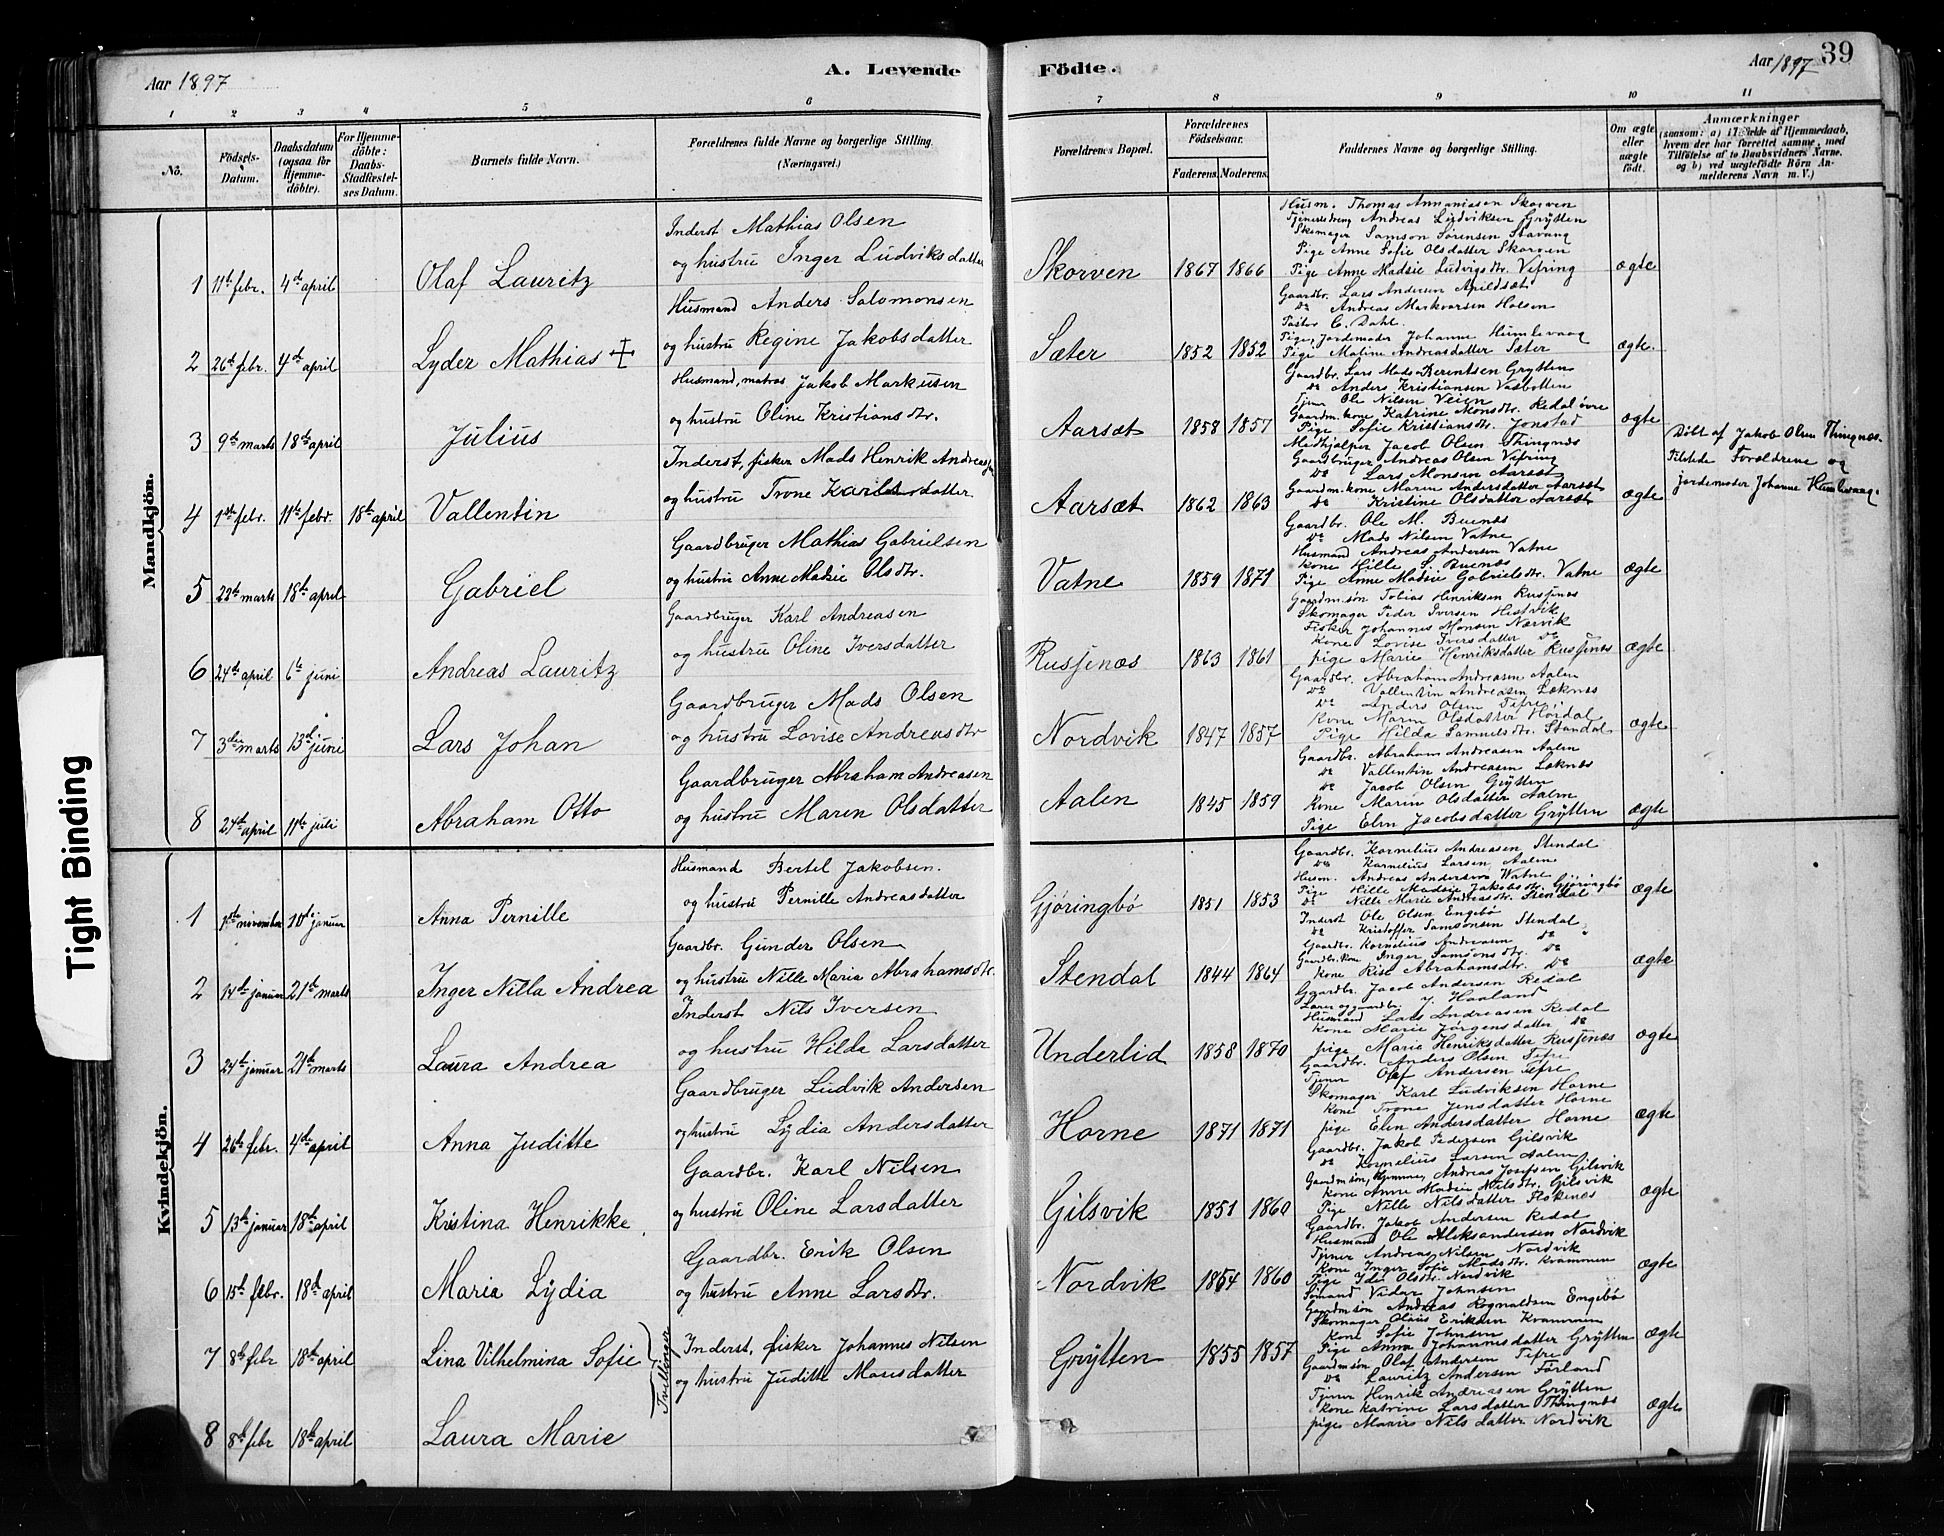 Aar 1897
A. Levende
Födte.
Aar 1897
39
1 2 3 4 5 6 7 8 9 10 11
No.
Födsels-Datum.
Daabsdatum (ogsaa for Hjemmedöbte).
For Hjemmedöbte: Daabs-Stadfæstelses Datum.
Barnets fulde Navn.
Forældrenes fulde Navne og borgerlige Stilling. (Næringsvei.)
Forældrenes Bopæl.
Forældrenes Födselsaar.
Faderens. Moderens.
Faddernes Navne og borgerlige Stilling.
Om ægte eller uægte födt.
Anmærkninger
(saasom: a) i Tilfælde af Hjemmedaab, hvem der har forrettet samme, med Tilföielse af to Daabsvidners Navne. og b) ved uægtefödte Börn Anmelderens Navn m. V.)
Mandkjön.
Inderst Mathias Olsen
og hustru Inger Ludviksdatter
1 11te febr. 4de april Olaf Lauritz Skorven 1867 1866 ægte
Husm. Thomas Annaniasen Skorven
Tjenestedreng Andreas Ludviksen Grytten
Skomager Samson Sørensen Stavang
Pige Anne Sofie Olsdatter Skorven
Pige Anne Madsie Ludvigsdtr. Vefring
Husmand Anders Salomonsen
og hustru Regine Jakobsdatter
2 26de febr. 4de april Lyder Mathias + Sæter 1852 1852 ægte.
Gaardbr. Lars Andersen Apildsæt
do Andreas Markvarsen Holsen
Pastor C. Dahl.
Pige, Jordemoder Johanne Humlevaag
Pige Maline Andreasdatter Sæter
Husmand, matros Jakob Markusen
og hustru Oline Kristiansdtr.
3 9de marts 18de april Julius Aarsæt 1858 1857 ægte
Gaardbr. Lars Mads Berentsen Grytten
do Anders Kristiansen Vasbotten
Tjener Ole Nilsen Veien
Gaardm. kone Katrine Monsdtr. Redal øvre
Pige Sofie Kristiansdtr. Jonstad
Inderst, fisker Mads Henrik Andreassen
og hustru Trone Karlsdatter
4 1ste febr. 11te febr. 18de april Vallentin Aarsæt 1862 1863 ægte
Medhjælper Jacob Olsen Thingnæs
Gaardbruger Andreas Olsen Vefring
do Lars Monsen Aarsæt
Gaardm. kone Maren Andersdatter Aarsæt
do Kristine Olsdatter Aarsæt
Döbt af Jakob Olsen Thingnæs.
Tilstede Forældrene og
jordemoder Johanne Humlevaag.
Gaardbruger Mathias Gabrielsen
og hustru Anne Madsie Olsdtr.
5 22de marts 18de april Gabriel Vatne 1859 1871 ægte
Gaardbr. Ole M. Buenæs
do Mads Nilsen Vatne
Husmand Andreas Andersen Vatne
Kone Hille S. Buenæs
Pige Anne Madsie Gabrielsdtr. Vatne
Gaardbruger Karl Andreasen
og hustru Oline Iversdatter
6 24de april 6te juni Andreas Lauritz Russenæs 1863 1861 ægte
Gaardm. søn Tobias Henriksen Russenæs
Skomager Peder Iversen Hestvik
Fisker Johannes Monsen Nærvik
Kone Lovise Iversdatter do
pige Marie Henriksdatter Russenæs
Gaardbruger Mads Olsen
og hustru Lovise Andreasdtr
7 3die marts 13de juni Lars Johan Nordvik 1847 1857 ægte
Gaardbr. Abraham Andreasen Aalen
do Vallentin Andreasen Leknæs
do Anders Olsen Tefre
Kone Maren Olsdatter Hordal
Pige Hilda Samuelsdtr. Standal
Gaardbruger Abraham Andreasen
og hustru Maren Olsdatter
8 24de april 11te juli Abraham Otto Aalen 1845 1859 ægte
Gaardbr. Abraham Andreasen Aalen
do Vallentin Andreasen Leknæs
do Jacob Olsen Grytten
Kone Marin Olsdatter Aalen
Pige Elen Jacobsdatter Grytten
Kvindekjön.
Husmand Bertel Jakobsen.
og hustru Pernille Andreasdatter
1 1ste november 10de januar Anna Pernille Gjøringbø 1851 1853 ægte
Gaardbr. Kornelius Andreasen Stendal
do Kornelius Larsen Aalen
Husm. Andreas Andersen Watne
Pige Hille Madsie Jakobsdtr. Gjøringbø
do Nille Marie Andreasdtr. Stendal
Gaardbr. Gunder Olsen
og hustru Nille Maria Abrahamsdtr.
2 14de januar 21de marts Inger Nilla Andrea Stendal 1844 1864 ægte
Inderst Ole Olsen Engebø
do Kristoffer Samsonsen Stendal
Gaardbr. Kornelius Andreasen do
Gaardbr. kone Inger Samsonsdtr. do
Kone Rise Abrahamsdtr. do
Inderst Nils Iversen
og hustru Hilda Larsdatter
3 24de januar 21de marts Laura Andrea Underlid 1858 1870 ægte
Gaardbr. Jacob Andersen Redal
Lærer og gaardbr. J. Haaland
Husmand Lars Andreasen Redal
Kone Marie Jørgensdatter do
pige Marie Henriksdatter Russenæs
Gaardbruger Ludvik Andersen
og hustru Lydia Andersdatter
4 26de febr. 4de april Anna Juditte Horne 1871 1871 ægte
Gaardbr. Anders Olsen Tefre
Tjener Olaf Andersen Tefre
Skomager Karl Ludviksen Horne
Kone Trone Jensdatter Horne
pige Elen Andersdatter Horne
Gaardbr. Karl Nilsen
og hustru Oline Larsdatter
5 13de januar 18de april Kristina Henrikke Gilsvik 1851 1860 ægte
Gaardbr. Jakob Pedersen Gilsvik
do Kornelius Larsen Aalen
Gaardm søn, Andreas Josefsen Gilsvik
Kone Anne Madsie Nilsdtr. Gilsvik
Pige Nille Nilsdatter Fiskenæs
Gaardbr. Erik Olsen
og hustru Anne Larsdtr.
6 15de febr. 18de april Maria Lydia Nordvik 1854 1860 ægte
Gaardbr. Jakob Andersen Redal
Husmand Ole Aleksandersen Nordvik
Tjener Andreas Nilsen Nordvik
Kone Inger Sofie Madsdtr. Kvammen
Pige Ida Olsdtr. Nordvik
Inderst, fisker Johannes Nilsen
og hustru Juditte Mosesdatter
Tvillinger
7 8de febr 18de april Lina Vilhelmina Sofie Grytten 1855 1857 ægte
Sømand Vidar Johnsen
Gaardm søn Andreas Rognaldsen Engebø
Skomager Olaus Eriksen Kvammen
Kone Sofie Johnsen
Pige Anna Johannesdatter Grytten
8 8de febr 18de april Laura Marie ægte
Gaardm søn Olaf Andersen Tefre
do Lauritz Andersen Förland
Tjener Henrik Andreasen Grytten
Kone Katrine Larsdatter Thingnæs
pige Nilsdatter Nordvik
Tight Binding